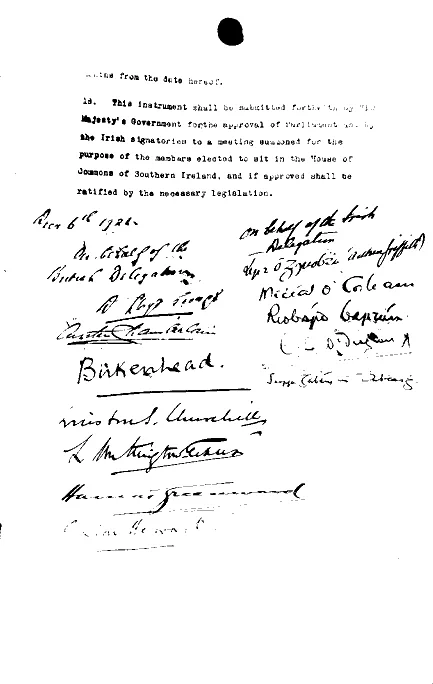 from the date hereof.
18. This instrument shall be submitted forthwith by His
Majesty's Government forthe approval of Parliament and by
the Irish signatories to a meeting summoned for the
purpose of the members elected to sit in the House of
Commons of Southern Ireland, and if approved shall be
ratified by the necessary legislation.
Decr 6th 1921.
On behalf of the
British Delegation
D Lloyd George
Austen Chamberlain
Birkenhead.
Winston S. Churchill
L Worthington-Evans
Hamar Greenwood
Gordon Hewart
On behalf of the Irish
Delegation
Art Ó Gríobhtha (Arthur Griffith)
Micéál Ó Coileain
Riobárd Bartún